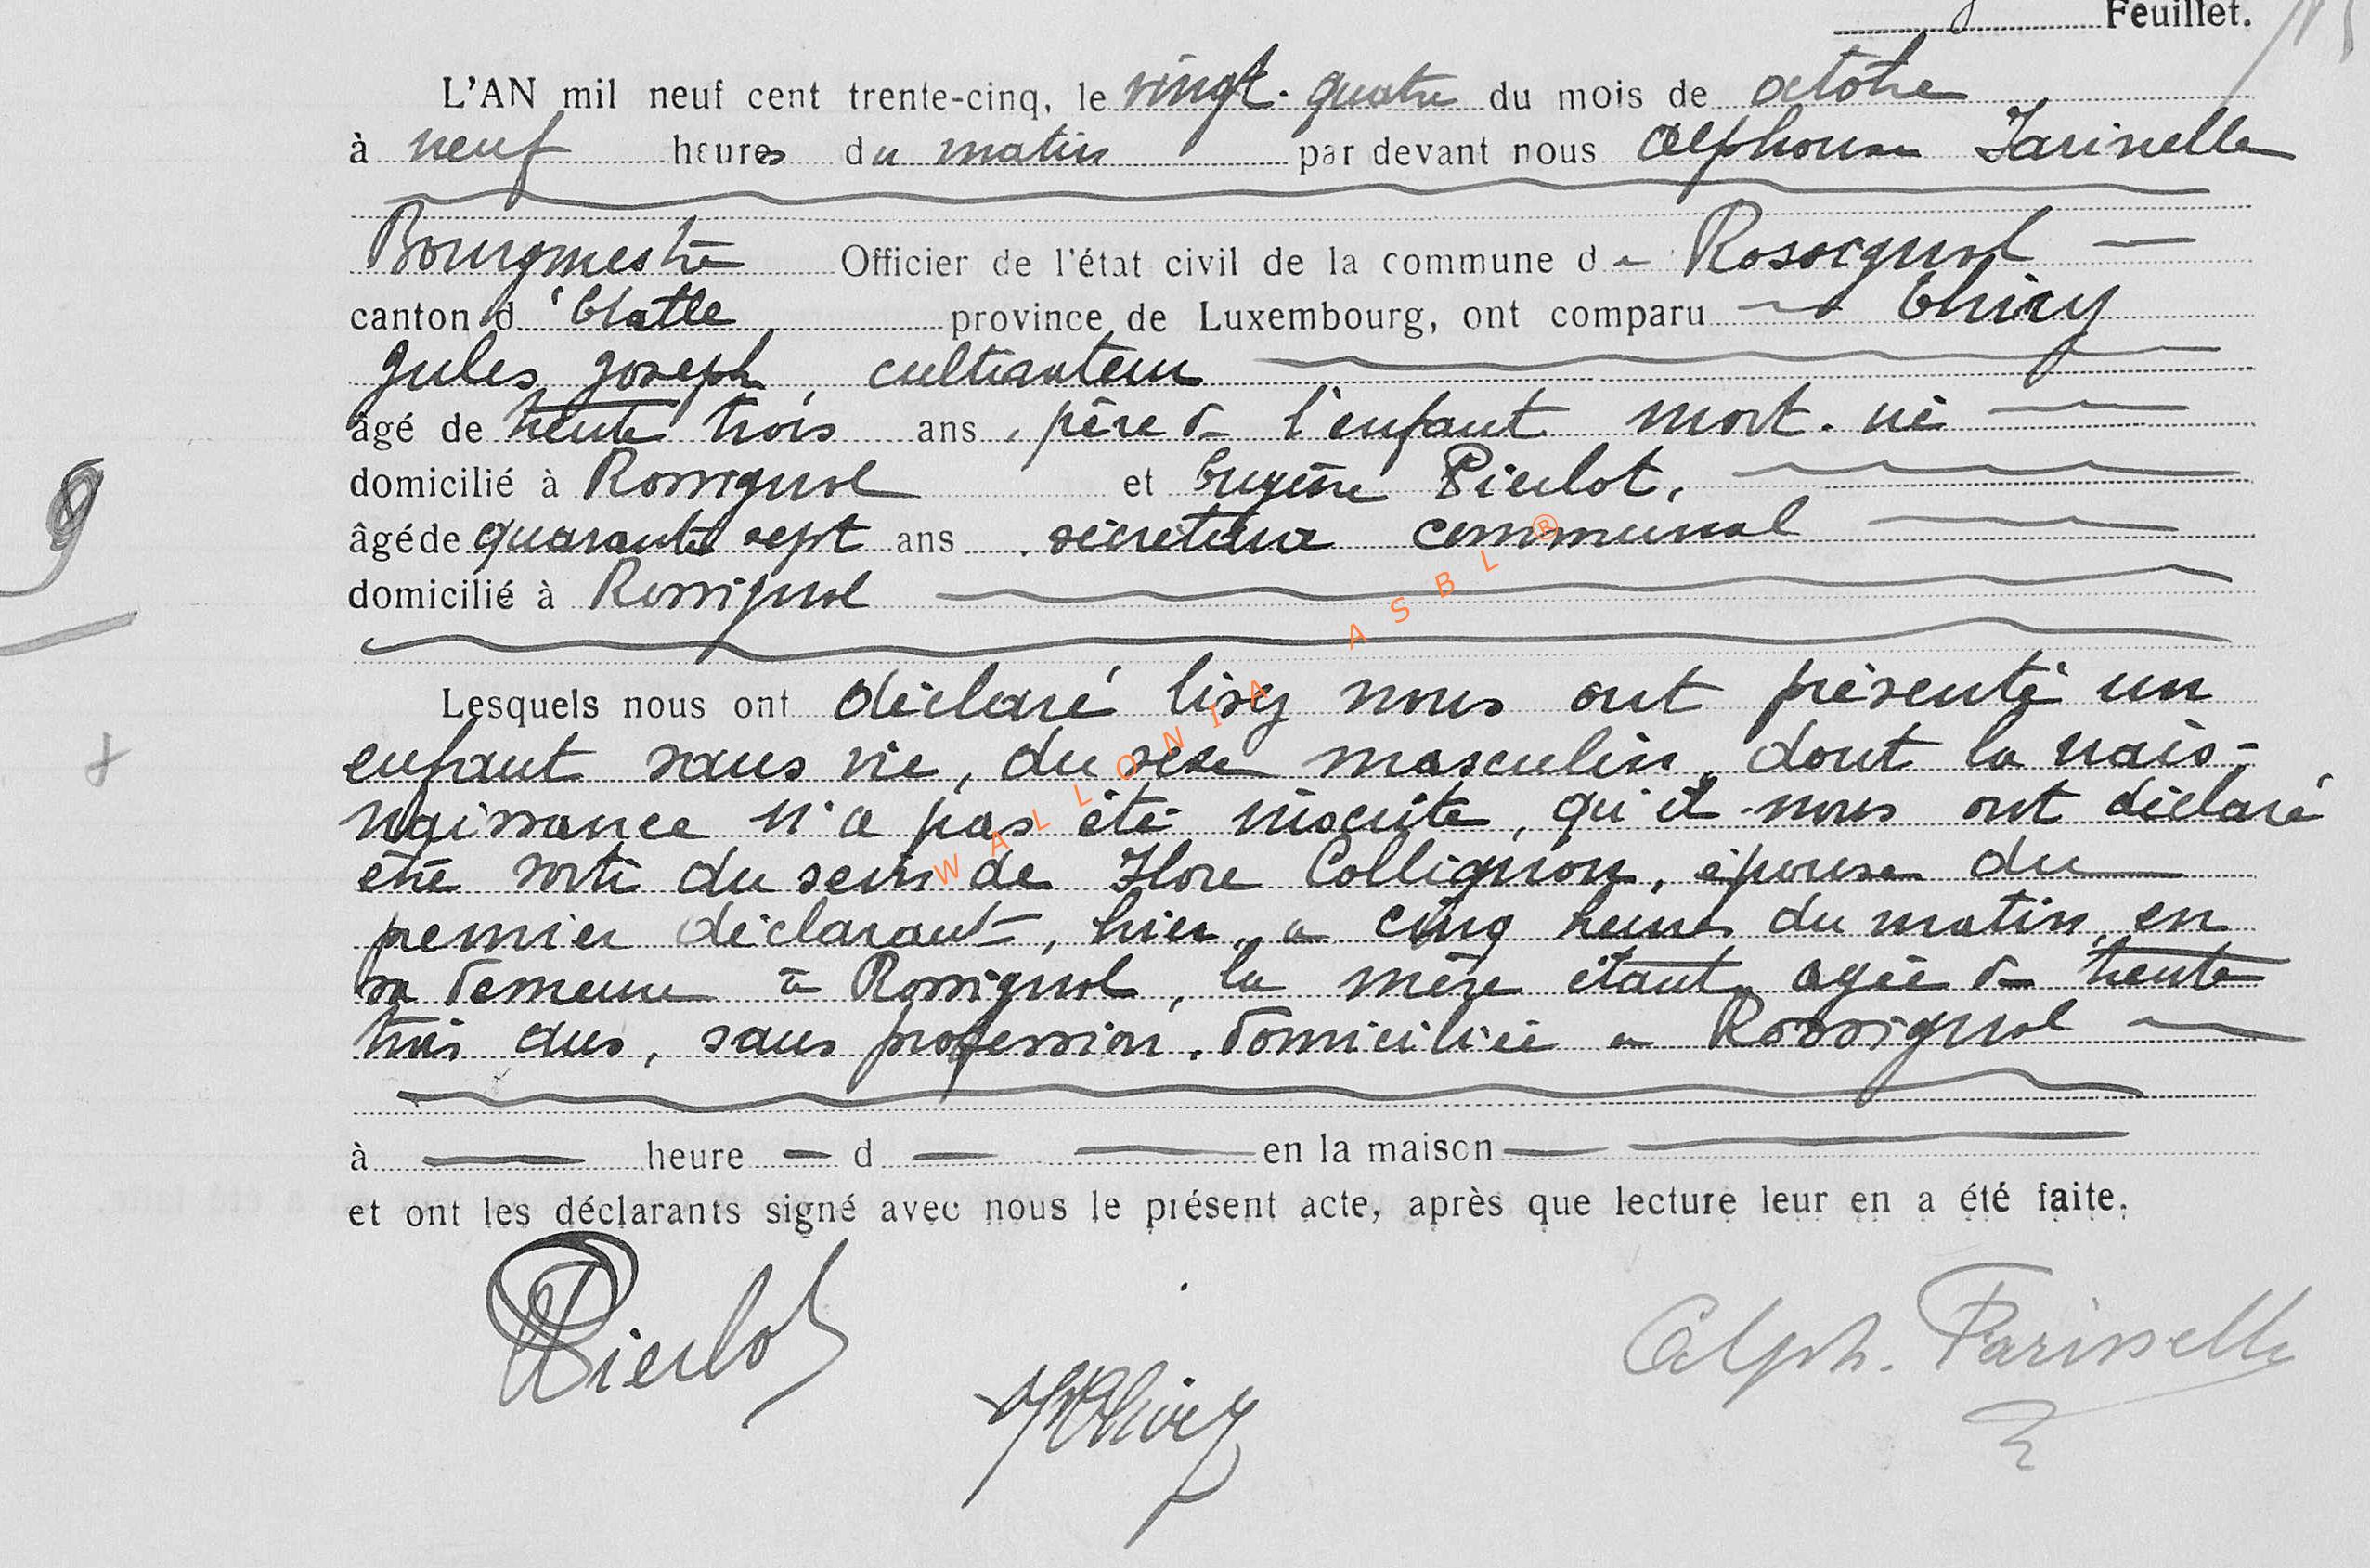 Feuillet.
L'AN mil neuf cent trente-cinq, le vingt-quatre du mois de octobre
à neuf heures du matin par devant nous Alphonse Parisselle
Bourgmestre Officier de l'état civil de la commune de Rossignol
canton d'Etalle province de Luxembourg, ont comparu Thiry
Jules Joseph, cultivateur
âgé de trente trois ans, père de l'enfant mort-né
domicilié à Rossignol et Eugène Pierlot,
âgé de quarante sept ans, secrétaire communal
domicilié à Rossignol
Lesquels nous ont déclaré nous ont présenté un
enfant sans vie, du sexe masculin, dont la nais-
naissance n'a pas été inscrite, qu'il nous ont déclaré
être sorti du sein de Flore Collignon, épouse du
premier déclarant, hier, à cinq heures du matin, en
sa demeure à Rossignol, la mère étant agée de trente
trois ans, sans profession, domiciliée à Rossignol
à heure d en la maison
et ont les déclarants signé avec nous le présent acte, après que lecture leur en a été faite.
Pierlot
Thiry
Alph. Parisselle
9
WALLONIA ASBL ®